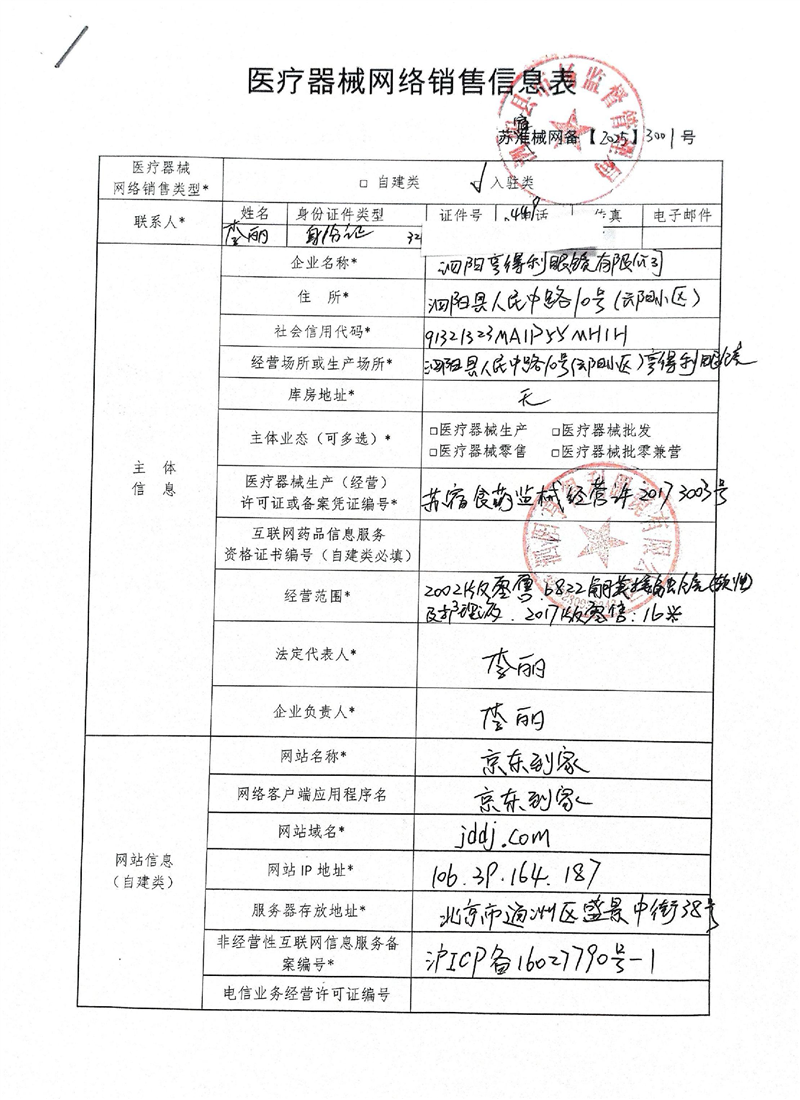 医疗器械网络销售信息表
苏宿械网备【2025】3001号
医疗器械
网络销售类型*
□ 自建类
√ 入驻类
联系人*
姓名 身份证件类型 证件号 话 传真 电子邮件
李丽 身份证 32
主体
信息
企业名称* 泗阳亨得利眼镜有限公司
住 所* 泗阳县人民中路10号(云阳小区)
社会信用代码* 91321323MA1P55MH1H
经营场所或生产场所* 泗阳县人民中路10号(云阳小区)亨得利眼镜
库房地址* 无
主体业态（可多选）*
□医疗器械生产 □医疗器械批发
□医疗器械零售 □医疗器械批零兼营
医疗器械生产（经营）
许可证或备案凭证编号*
苏宿食药监械经营许20173003号
互联网药品信息服务
资格证书编号（自建类必填）
经营范围*
2002版零售:6822角膜接触镜(软性)
及护理液.2017版零售:16类
法定代表人* 李丽
企业负责人* 李丽
网站信息
（自建类）
网站名称* 京东到家
网络客户端应用程序名 京东到家
网站域名* jddj.com
网站 IP 地址* 106.39.164.187
服务器存放地址* 北京市通州区盛景中街38号
非经营性互联网信息服务备
案编号*
沪ICP备16027790号-1
电信业务经营许可证编号
泗阳县市场监督管理局
泗阳亨得利眼镜有限公司